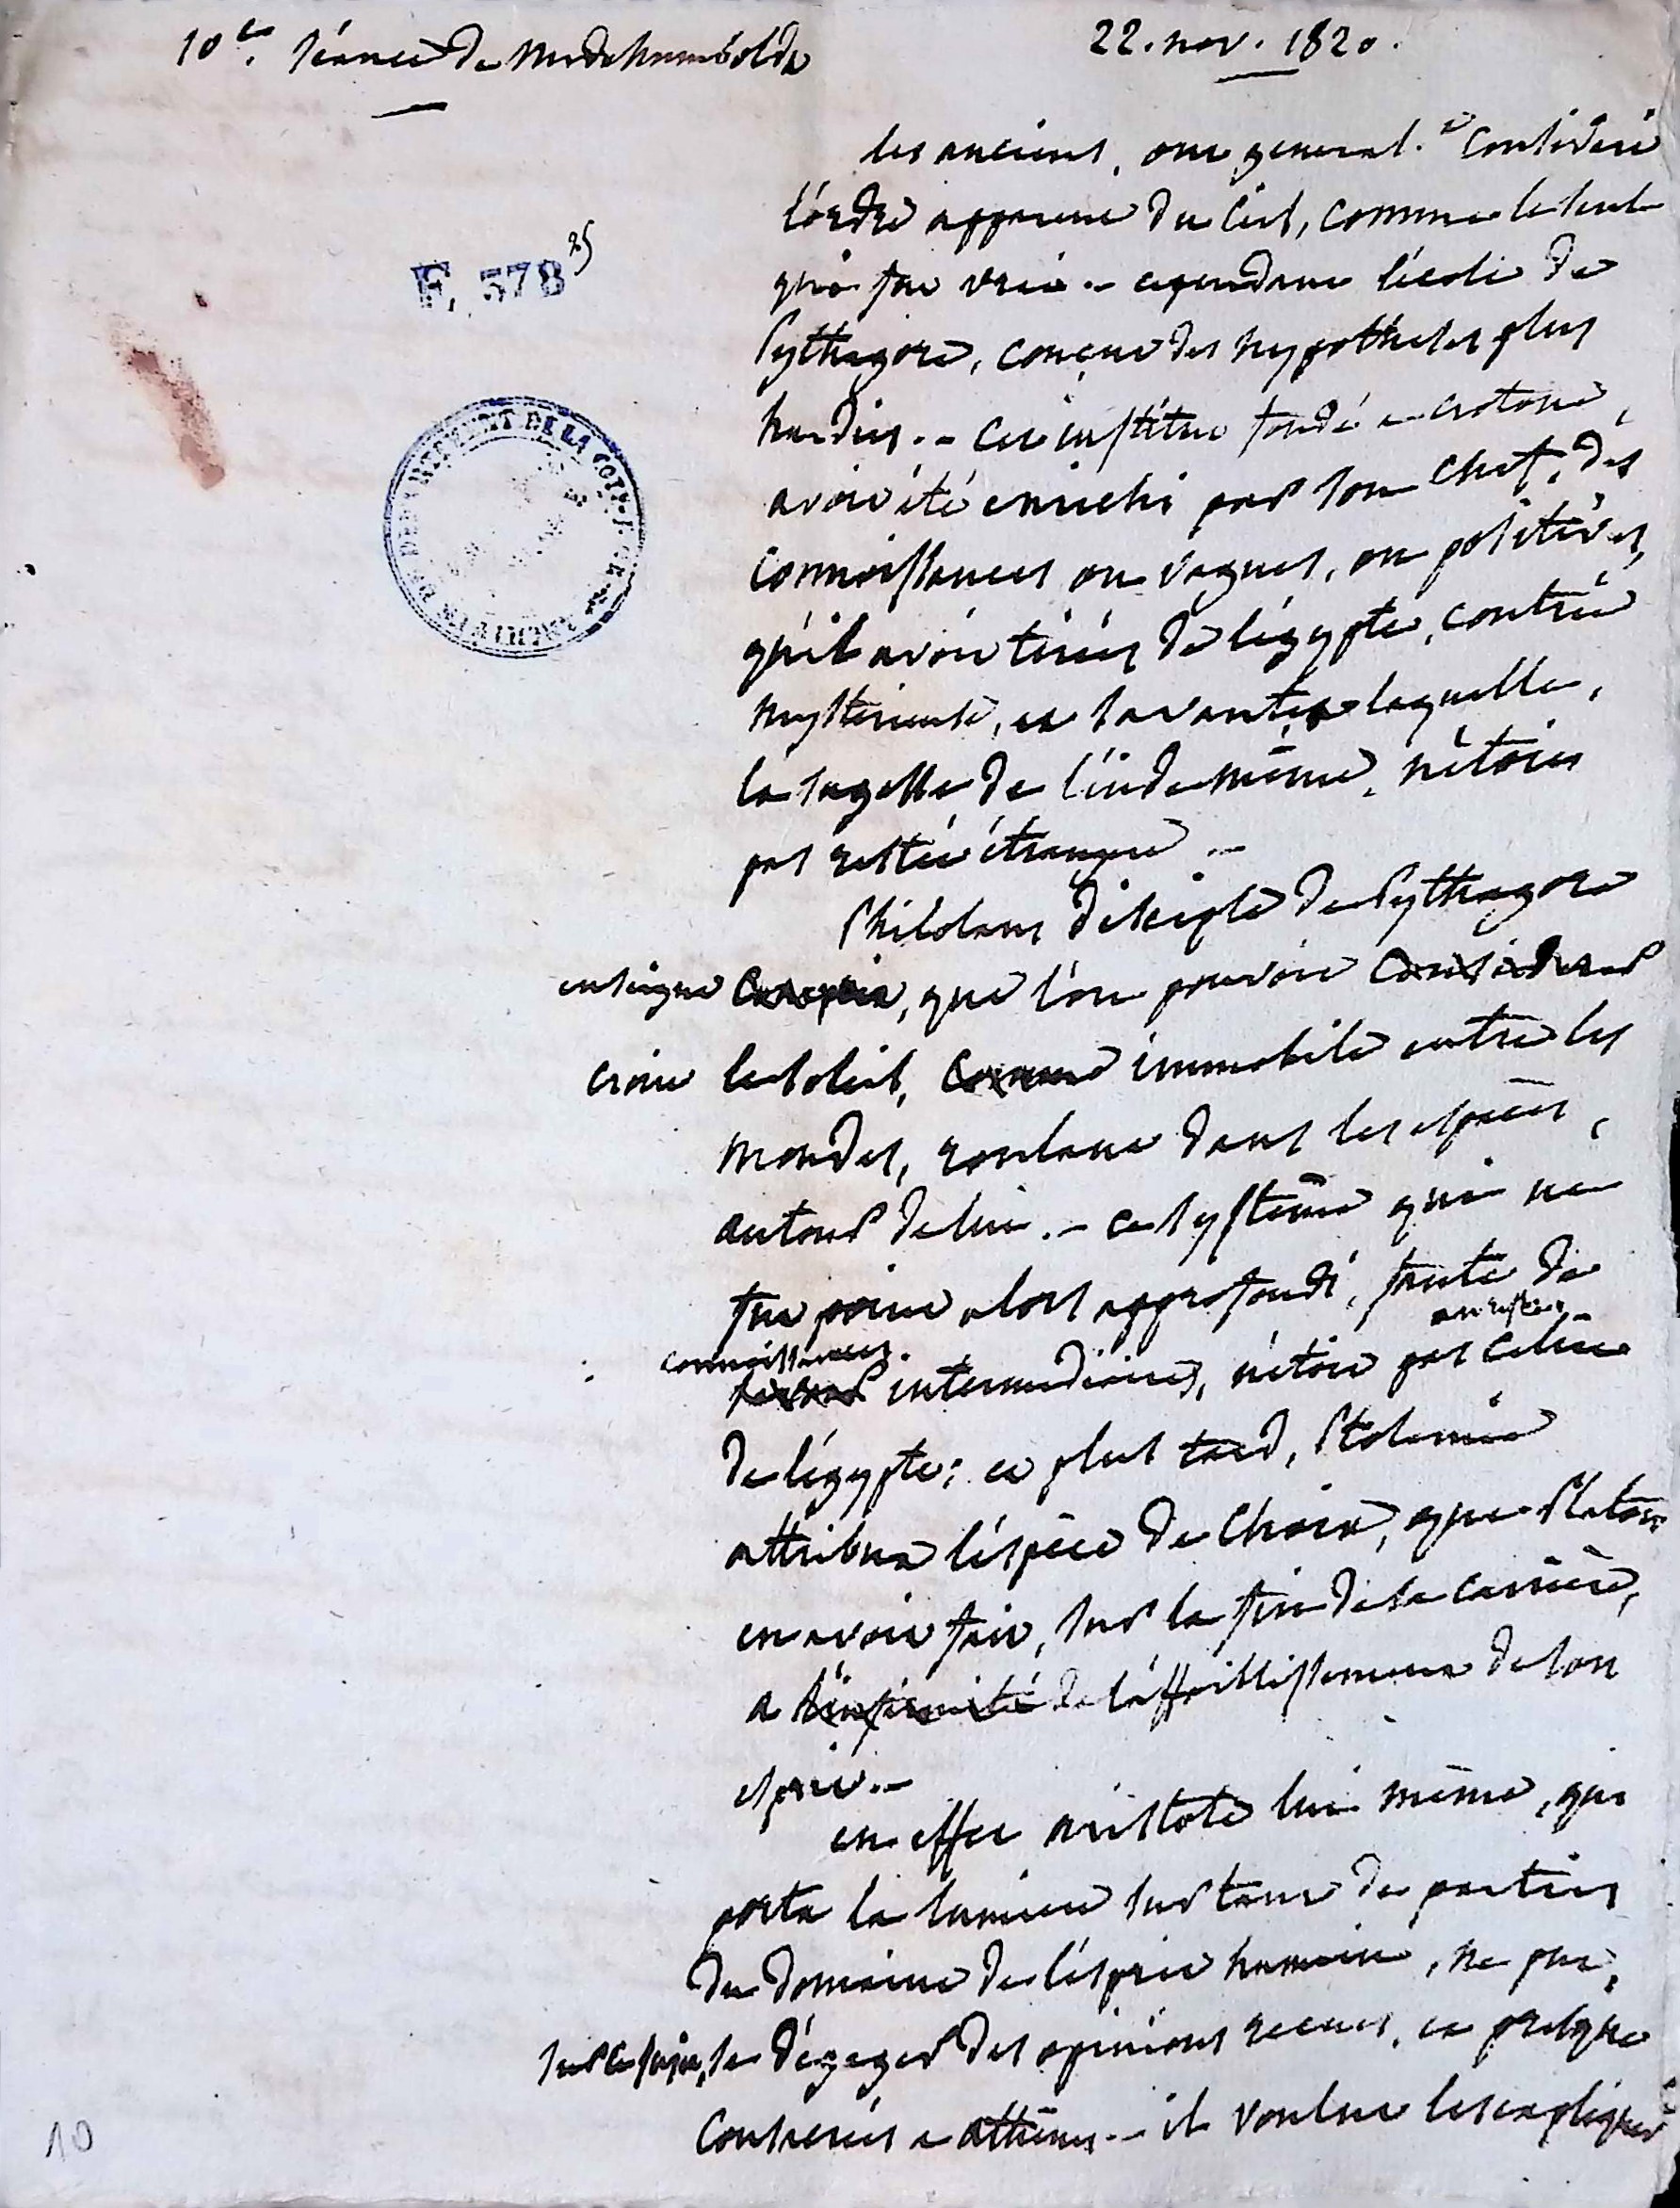 10e. séance de Mr de humboldt
22. nov. 1820.
les anciens, ont general.t considéré
l'ordre apparent du ciel, comme le seul
qui fut vrai. - cependant l'école de
Pythagore, conçut des hypothèses plus
hardies. - cet institut fondé a crotone,
avoit été enrichi par son chef, des
connoissances ou vagues, ou positives,
qu'il avoit tirées de l'égypte, contrée
mystérieuse, et savante a laquelle,
la sagesse de l'inde même, n'étoit
pas restée étrangère -
Philolaus disciple de Pythagore
enseigna conçut, que l'on pouvoit considerer
croire le soleil, comme immobile entre les
mondes, roulant dans les espaces,
autour de lui. - ce système qui ne
fut point alors approfondi, faute de
connoissances intermédiaires, n'étoit pas celui
de l'égypte; et plus tard, Ptolemée
attribua l'espèce de choix, que Platon
en avoit fait, sur la fin de sa carrière,
a l'infirmité de l'affoiblissement de son
esprit. -
en effet aristote lui même, qui
porta la lumiere sur tant de parties
du domaine de l'esprit humain, ne put,
sur ce sujet, se dégager des opinions recues, et presque
consacrées a athènes. - il voulut les expliquer
F. 378 25
ARCHIVES DU DEPARTEMENT DE LA COTE-D'OR
10